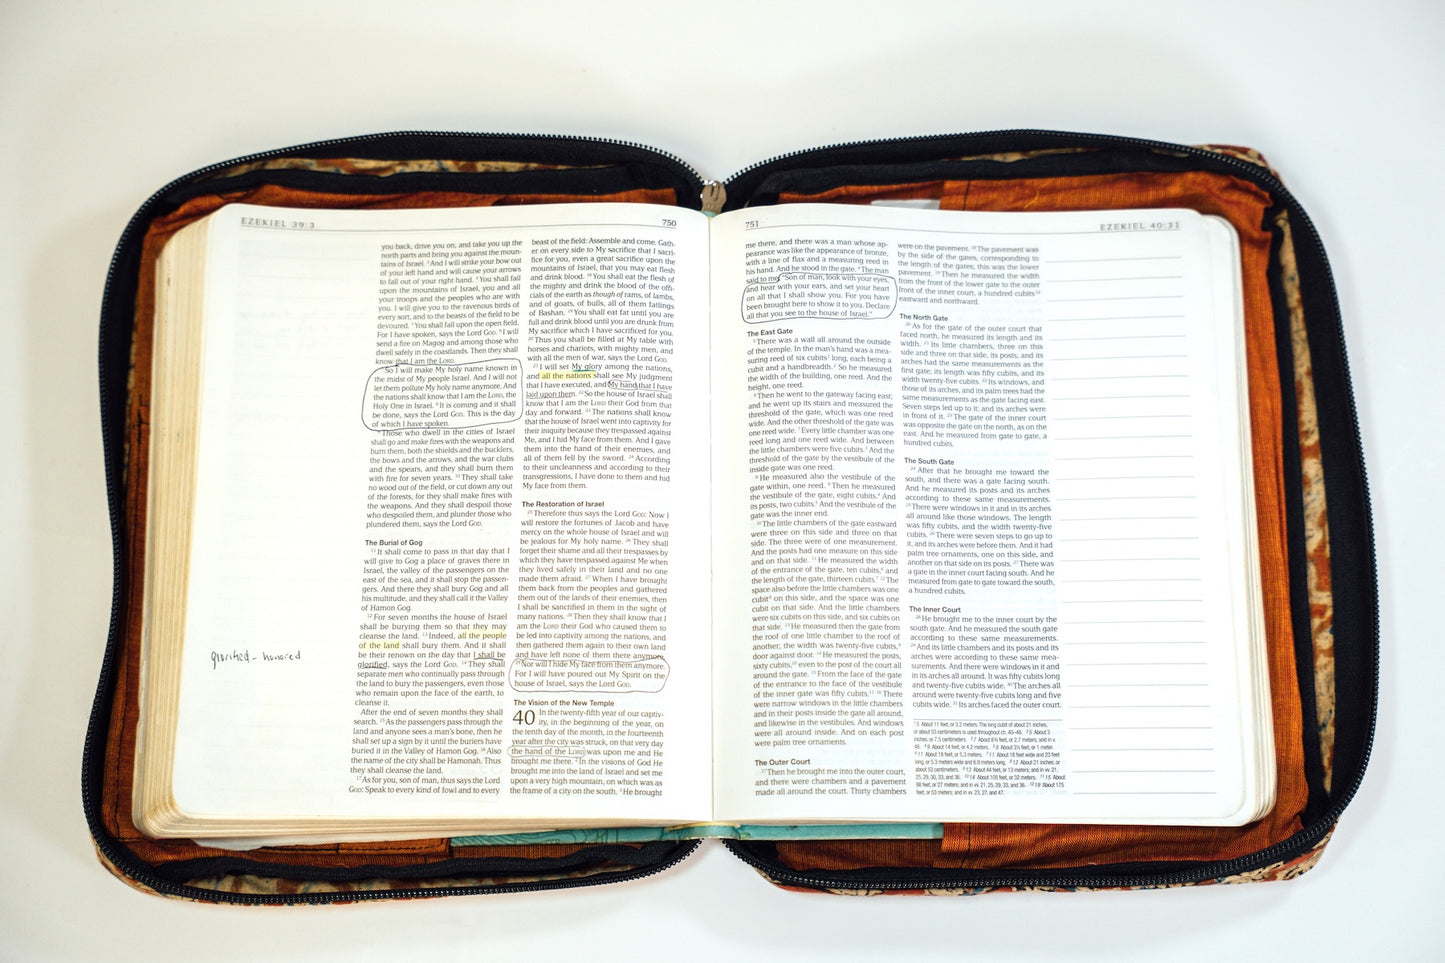 EZEKIEL 39:3
750
you back, drive you on, and take you up the
north parts and bring you against the moun-
tains of Israel. 3And I will strike your bow out
of your left hand and will cause your arrows
to fall out of your right hand. 4You shall fall
upon the mountains of Israel, you and all
your troops and the peoples who are with
you. I will give you to the ravenous birds of
every sort, and to the beasts of the field to be
devoured. 5You shall fall upon the open field.
For I have spoken, says the Lord GOD. 6I will
send a fire on Magog and among those who
dwell safely in the coastlands. Then they shall
know that I am the LORD.
7So I will make My holy name known in
the midst of My people Israel. And I will not
let them pollute My holy name anymore. And
the nations shall know that I am the LORD, the
Holy One in Israel. 8It is coming and it shall
be done, says the Lord GOD. This is the day
of which I have spoken.
9Those who dwell in the cities of Israel
shall go and make fires with the weapons and
burn them, both the shields and the bucklers,
the bows and the arrows, and the war clubs
and the spears, and they shall burn them
with fire for seven years. 10They shall take
no wood out of the field, or cut down any out
of the forests, for they shall make fires with
the weapons. And they shall despoil those
who despoiled them, and plunder those who
plundered them, says the Lord GOD.
The Burial of Gog
11It shall come to pass in that day that I
will give to Gog a place of graves there in
Israel, the valley of the passengers on the
east of the sea, and it shall stop the passen-
gers. And there they shall bury Gog and all
his multitude, and they shall call it the Valley
of Hamon Gog.
12For seven months the house of Israel
shall be burying them so that they may
cleanse the land. 13Indeed, all the people
of the land shall bury them. And it shall
be their renown on the day that I shall be
glorified, says the Lord GOD. 14They shall
separate men who continually pass through
the land to bury the passengers, even those
who remain upon the face of the earth, to
cleanse it.
After the end of seven months they shall
search. 15As the passengers pass through the
land and anyone sees a man's bone, then he
shall set up a sign by it until the buriers have
buried it in the Valley of Hamon Gog. 16Also
the name of the city shall be Hamonah. Thus
they shall cleanse the land.
17As for you, son of man, thus says the Lord
GOD: Speak to every kind of fowl and to every
glorified - honored
beast of the field: Assemble and come. Gath-
er on every side to My sacrifice that I sacri-
fice for you, even a great sacrifice upon the
mountains of Israel, that you may eat flesh
and drink blood. 18You shall eat the flesh of
the mighty and drink the blood of the offi-
cials of the earth as though of rams, of lambs,
and of goats, of bulls, all of them fatlings
of Bashan. 19You shall eat fat until you are
full and drink blood until you are drunk from
My sacrifice which I have sacrificed for you.
20Thus you shall be filled at My table with
horses and chariots, with mighty men, and
with all the men of war, says the Lord GOD.
21I will set My glory among the nations,
and all the nations shall see My judgment
that I have executed, and My hand that I have
laid upon them. 22So the house of Israel shall
know that I am the LORD their God from that
day and forward. 23The nations shall know
that the house of Israel went into captivity for
their iniquity because they trespassed against
Me, and I hid My face from them. And I gave
them into the hand of their enemies, and
all of them fell by the sword. 24According
to their uncleanness and according to their
transgressions, I have done to them and hid
My face from them.
The Restoration of Israel
25Therefore thus says the Lord GOD: Now I
will restore the fortunes of Jacob and have
mercy on the whole house of Israel and will
be jealous for My holy name. 26They shall
forget their shame and all their trespasses by
which they have trespassed against Me when
they lived safely in their land and no one
made them afraid. 27When I have brought
them back from the peoples and gathered
them out of the lands of their enemies, then
I shall be sanctified in them in the sight of
many nations. 28Then they shall know that I
am the LORD their God who caused them to
be led into captivity among the nations, and
then gathered them again to their own land
and have left none of them there anymore.
29Nor will I hide My face from them anymore.
For I will have poured out My Spirit on the
house of Israel, says the Lord GOD.
The Vision of the New Temple
40 In the twenty-fifth year of our captiv-
ity, in the beginning of the year, on
the tenth day of the month, in the fourteenth
year after the city was struck, on that very day
the hand of the LORD was upon me and He
brought me there. 2In the visions of God He
brought me into the land of Israel and set me
upon a very high mountain, on which was as
the frame of a city on the south. 3He brought
751
EZEKIEL 40:31
me there, and there was a man whose ap-
pearance was like the appearance of bronze,
with a line of flax and a measuring reed in
his hand. And he stood in the gate. 4The man
said to me, "Son of man, look with your eyes,
and hear with your ears, and set your heart
on all that I shall show you. For you have
been brought here to show it to you. Declare
all that you see to the house of Israel."
The East Gate
5There was a wall all around the outside
of the temple. In the man's hand was a mea-
suring reed of six cubits1 long, each being a
cubit and a handbreadth.2 So he measured
the width of the building, one reed. And the
height, one reed.
6Then he went to the gateway facing east;
and he went up its stairs and measured the
threshold of the gate, which was one reed
wide. And the other threshold of the gate was
one reed wide. 7Every little chamber was one
reed long and one reed wide. And between
the little chambers were five cubits.3 And the
threshold of the gate by the vestibule of the
inside gate was one reed.
8He measured also the vestibule of the
gate within, one reed. 9Then he measured
the vestibule of the gate, eight cubits.4 And
its posts, two cubits.5 And the vestibule of the
gate was the inner end.
10The little chambers of the gate eastward
were three on this side and three on that
side. The three were of one measurement.
And the posts had one measure on this side
and on that side. 11He measured the width
of the entrance of the gate, ten cubits,6 and
the length of the gate, thirteen cubits.7 12The
space also before the little chambers was one
cubit8 on this side, and the space was one
cubit on that side. And the little chambers
were six cubits on this side, and six cubits on
that side. 13He measured then the gate from
the roof of one little chamber to the roof of
another; the width was twenty-five cubits,9
door against door. 14He measured the posts,
sixty cubits,10 even to the post of the court all
around the gate. 15From the face of the gate
of the entrance to the face of the vestibule
of the inner gate was fifty cubits.11 16There
were narrow windows in the little chambers
and in their posts inside the gate all around,
and likewise in the vestibules. And windows
were all around inside. And on each post
were palm tree ornaments.
The Outer Court
17Then he brought me into the outer court,
and there were chambers and a pavement
made all around the court. Thirty chambers
were on the pavement. 18The pavement was
by the side of the gates, corresponding to
the length of the gates; this was the lower
pavement. 19Then he measured the width
from the front of the lower gate to the outer
front of the inner court, a hundred cubits12
eastward and northward.
The North Gate
20As for the gate of the outer court that
faced north, he measured its length and its
width. 21Its little chambers, three on this
side and three on that side, its posts, and its
arches had the same measurements as the
first gate; its length was fifty cubits, and its
width twenty-five cubits. 22Its windows, and
those of its arches, and its palm trees had the
same measurements as the gate facing east.
Seven steps led up to it; and its arches were
in front of it. 23The gate of the inner court
was opposite the gate on the north, as on the
east. And he measured from gate to gate, a
hundred cubits.
The South Gate
24After that he brought me toward the
south, and there was a gate facing south.
And he measured its posts and its arches
according to these same measurements.
25There were windows in it and in its arches
all around like those windows. The length
was fifty cubits, and the width twenty-five
cubits. 26There were seven steps to go up to
it, and its arches were before them. And it had
palm tree ornaments, one on this side, and
another on that side on its posts. 27There was
a gate in the inner court facing south. And he
measured from gate to gate toward the south,
a hundred cubits.
The Inner Court
28He brought me to the inner court by the
south gate. And he measured the south gate
according to these same measurements.
29And its little chambers and its posts and its
arches were according to these same mea-
surements. And there were windows in it and
in its arches all around. It was fifty cubits long
and twenty-five cubits wide. 30The arches all
around were twenty-five cubits long and five
cubits wide. 31Its arches faced the outer court.